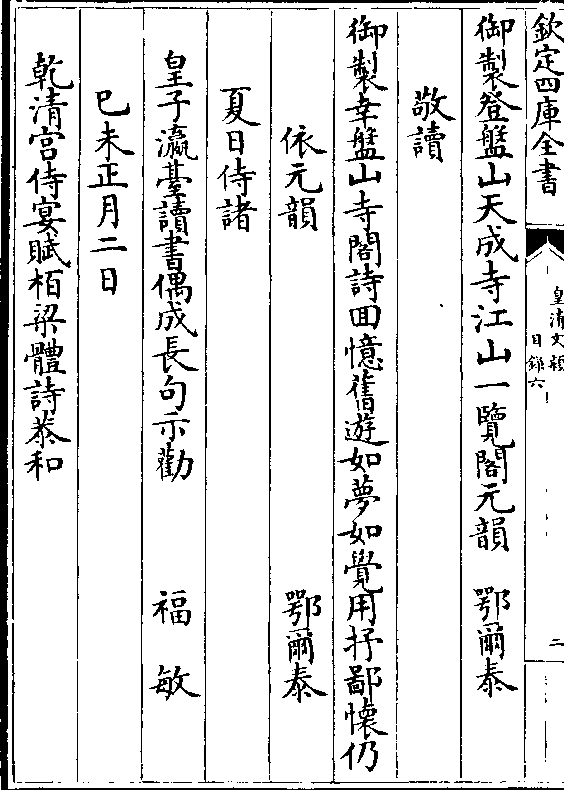 欽定四庫全書
皇清文穎
目錄六
二
御製登盤山天成寺江山一覽閣元韻 鄂爾泰
敬讀
御製幸盤山寺閣詩囬憶舊遊如夢如覺用抒鄙懷仍
依元韻 鄂爾泰
夏日侍諸
皇子瀛臺讀書偶成長句示勸 福敏
己未正月二日
乾清宫侍宴賦栢梁體詩恭和